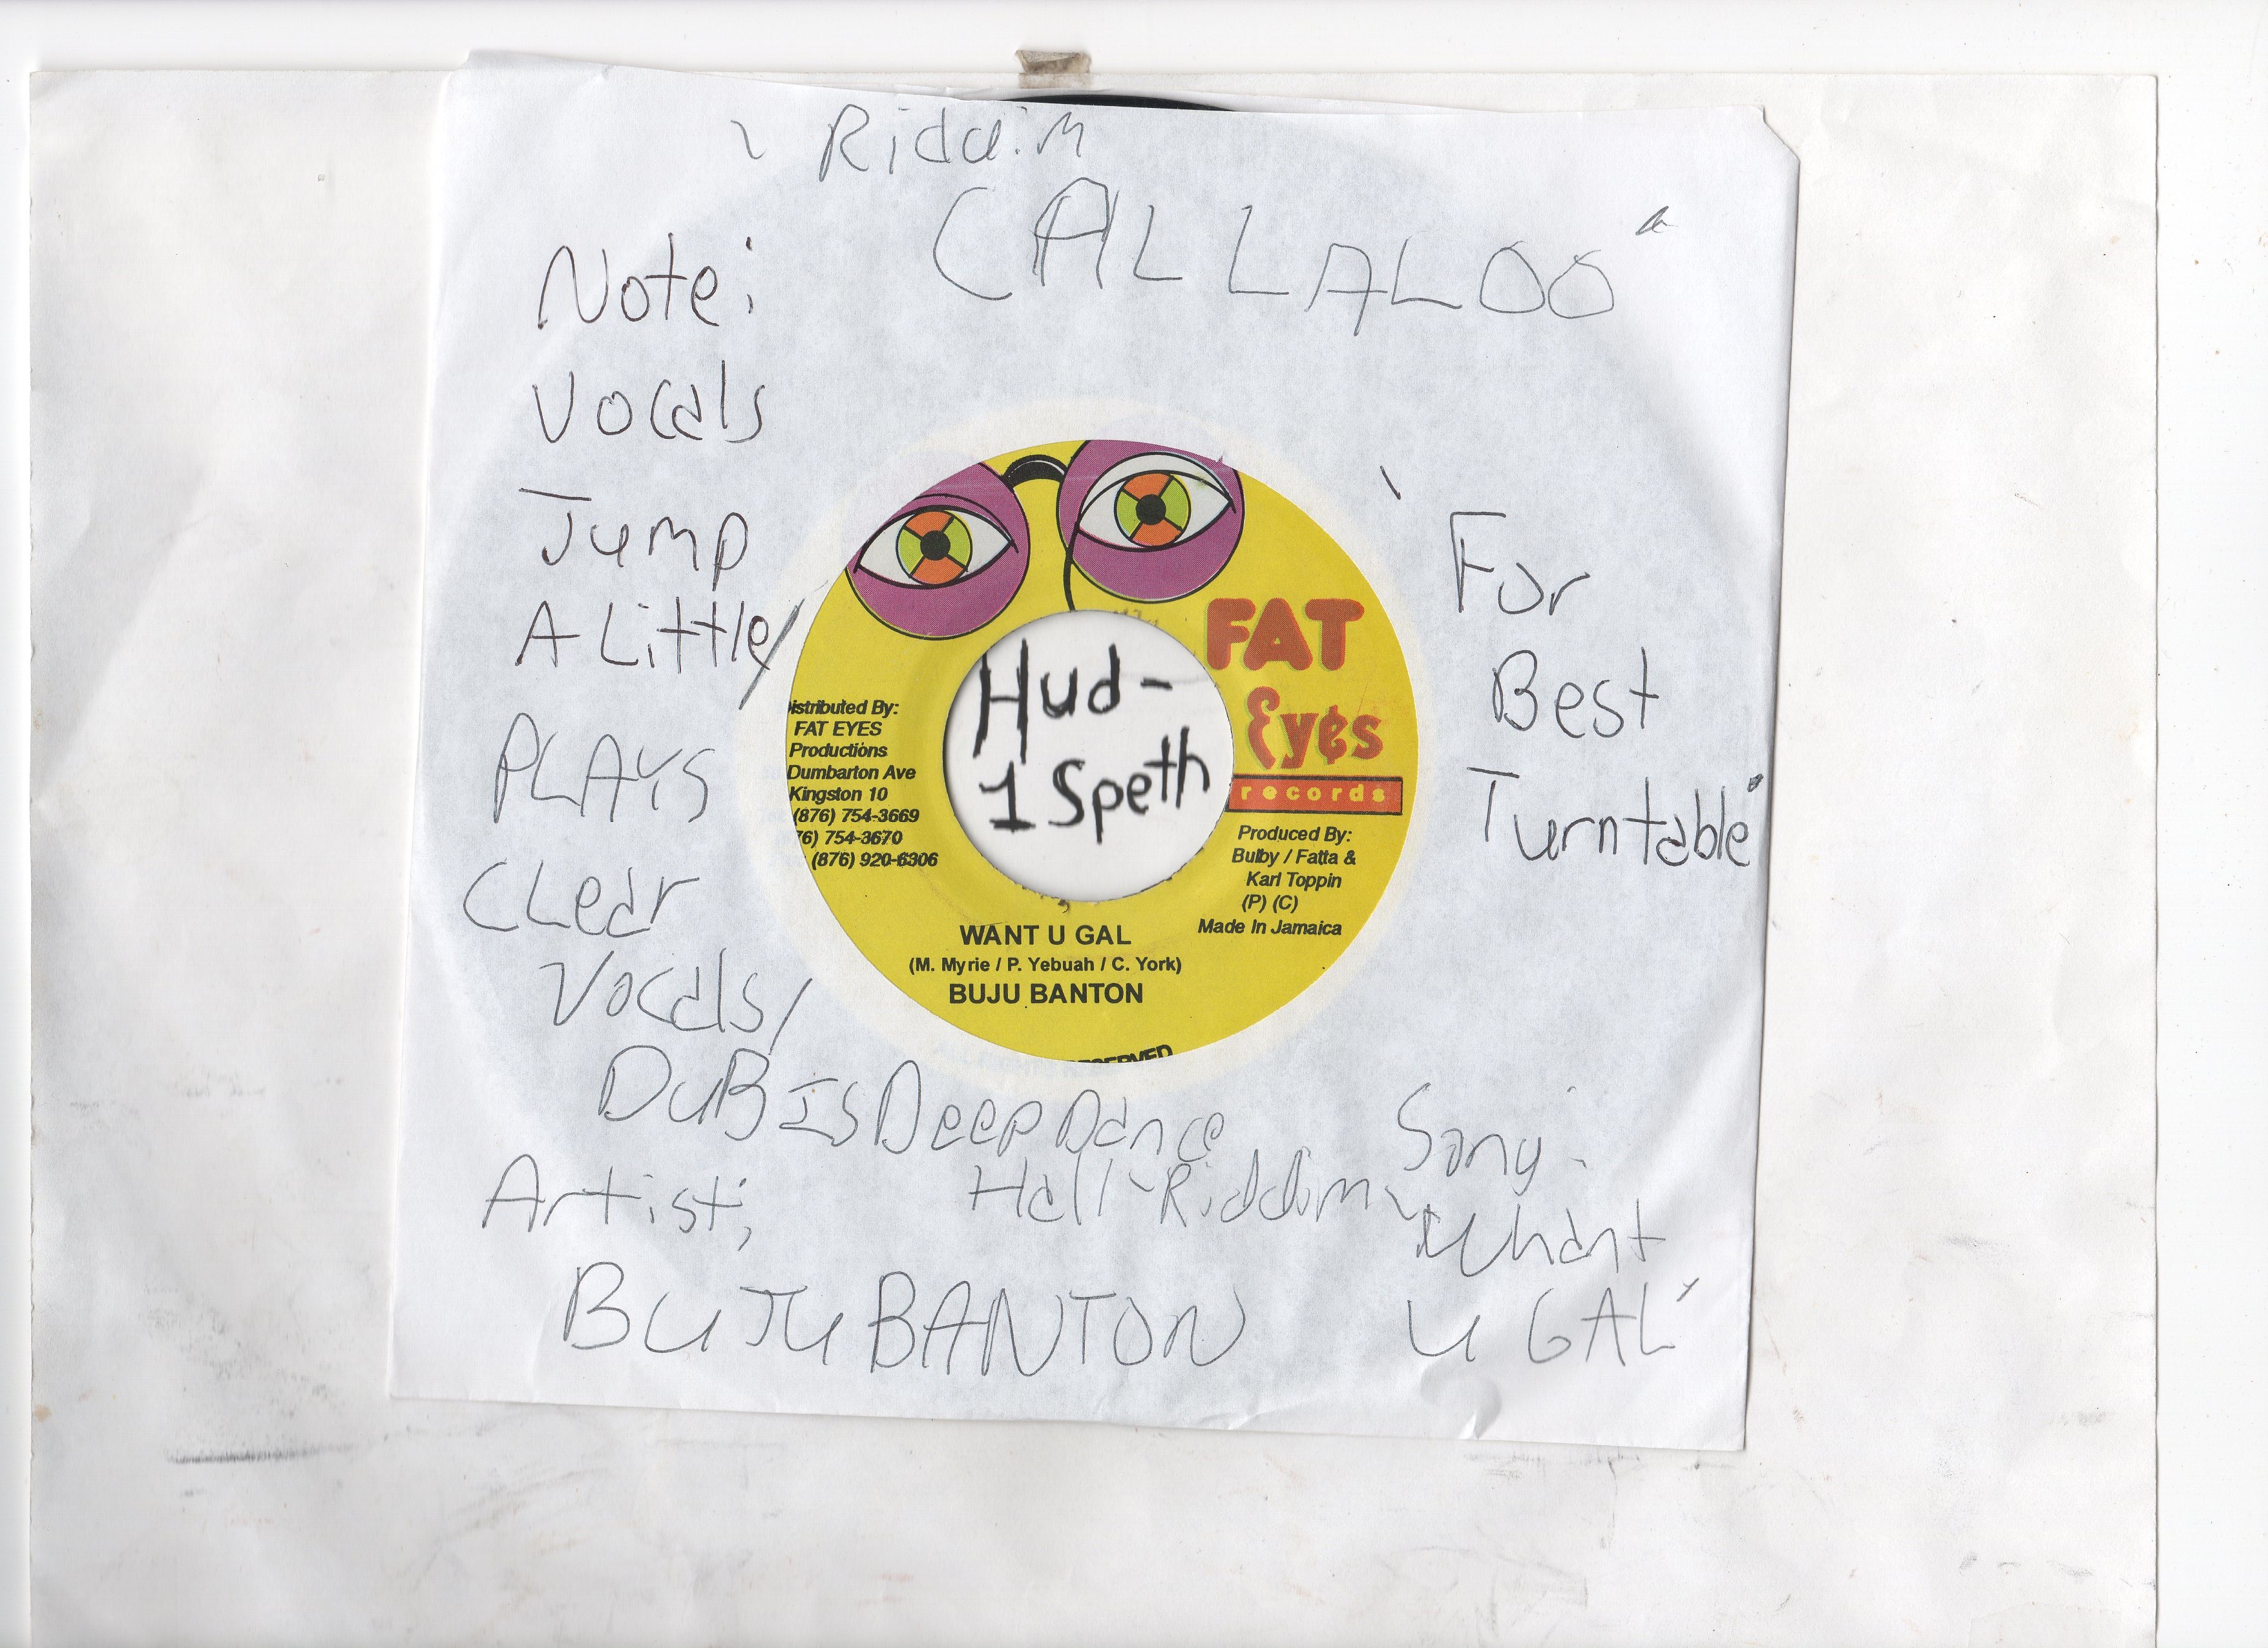 Riddim
CALLALOO"
Note:
Vocals
Jump
A Little/
PLAYS
CLear
Vocals/
DUB IS Deep Dance
Hall-Riddim
Artist;
BUJU BANTON
Song:
Whant
U GAL"
For
Best
Turntable"
FAT
Eyes
records
Hud-
1 Speth
istributed By:
FAT EYES
Productions
Dumbarton Ave
Kingston 10
(876) 754-3669
76) 754-3670
(876) 920-6306
Produced By:
Bulby / Fatta &
Karl Toppin
(P) (C)
Made In Jamaica
WANT U GAL
(M. Myrie / P. Yebuah / C. York)
BUJU BANTON
ESERVED